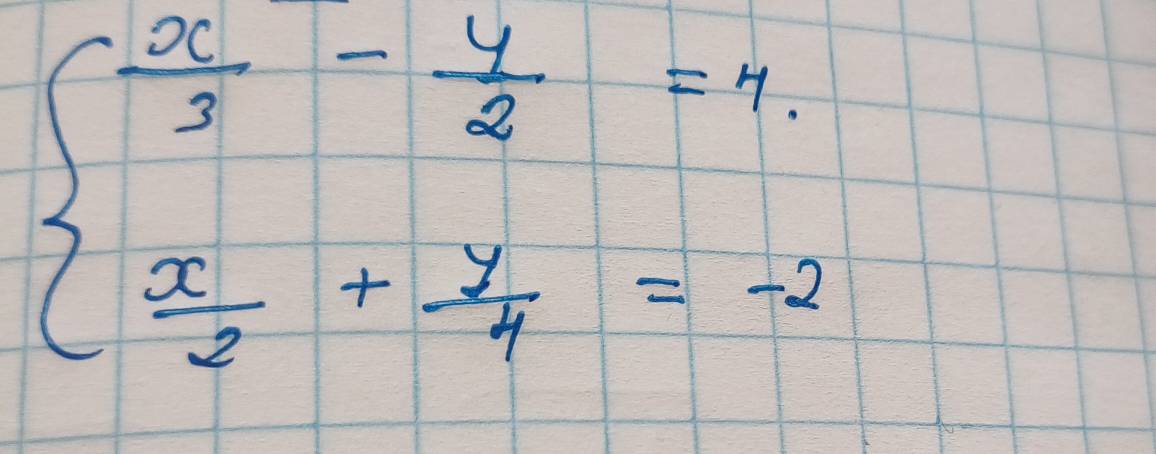 x/3 - y/2 = 4.
x/2 + y/4 = -2